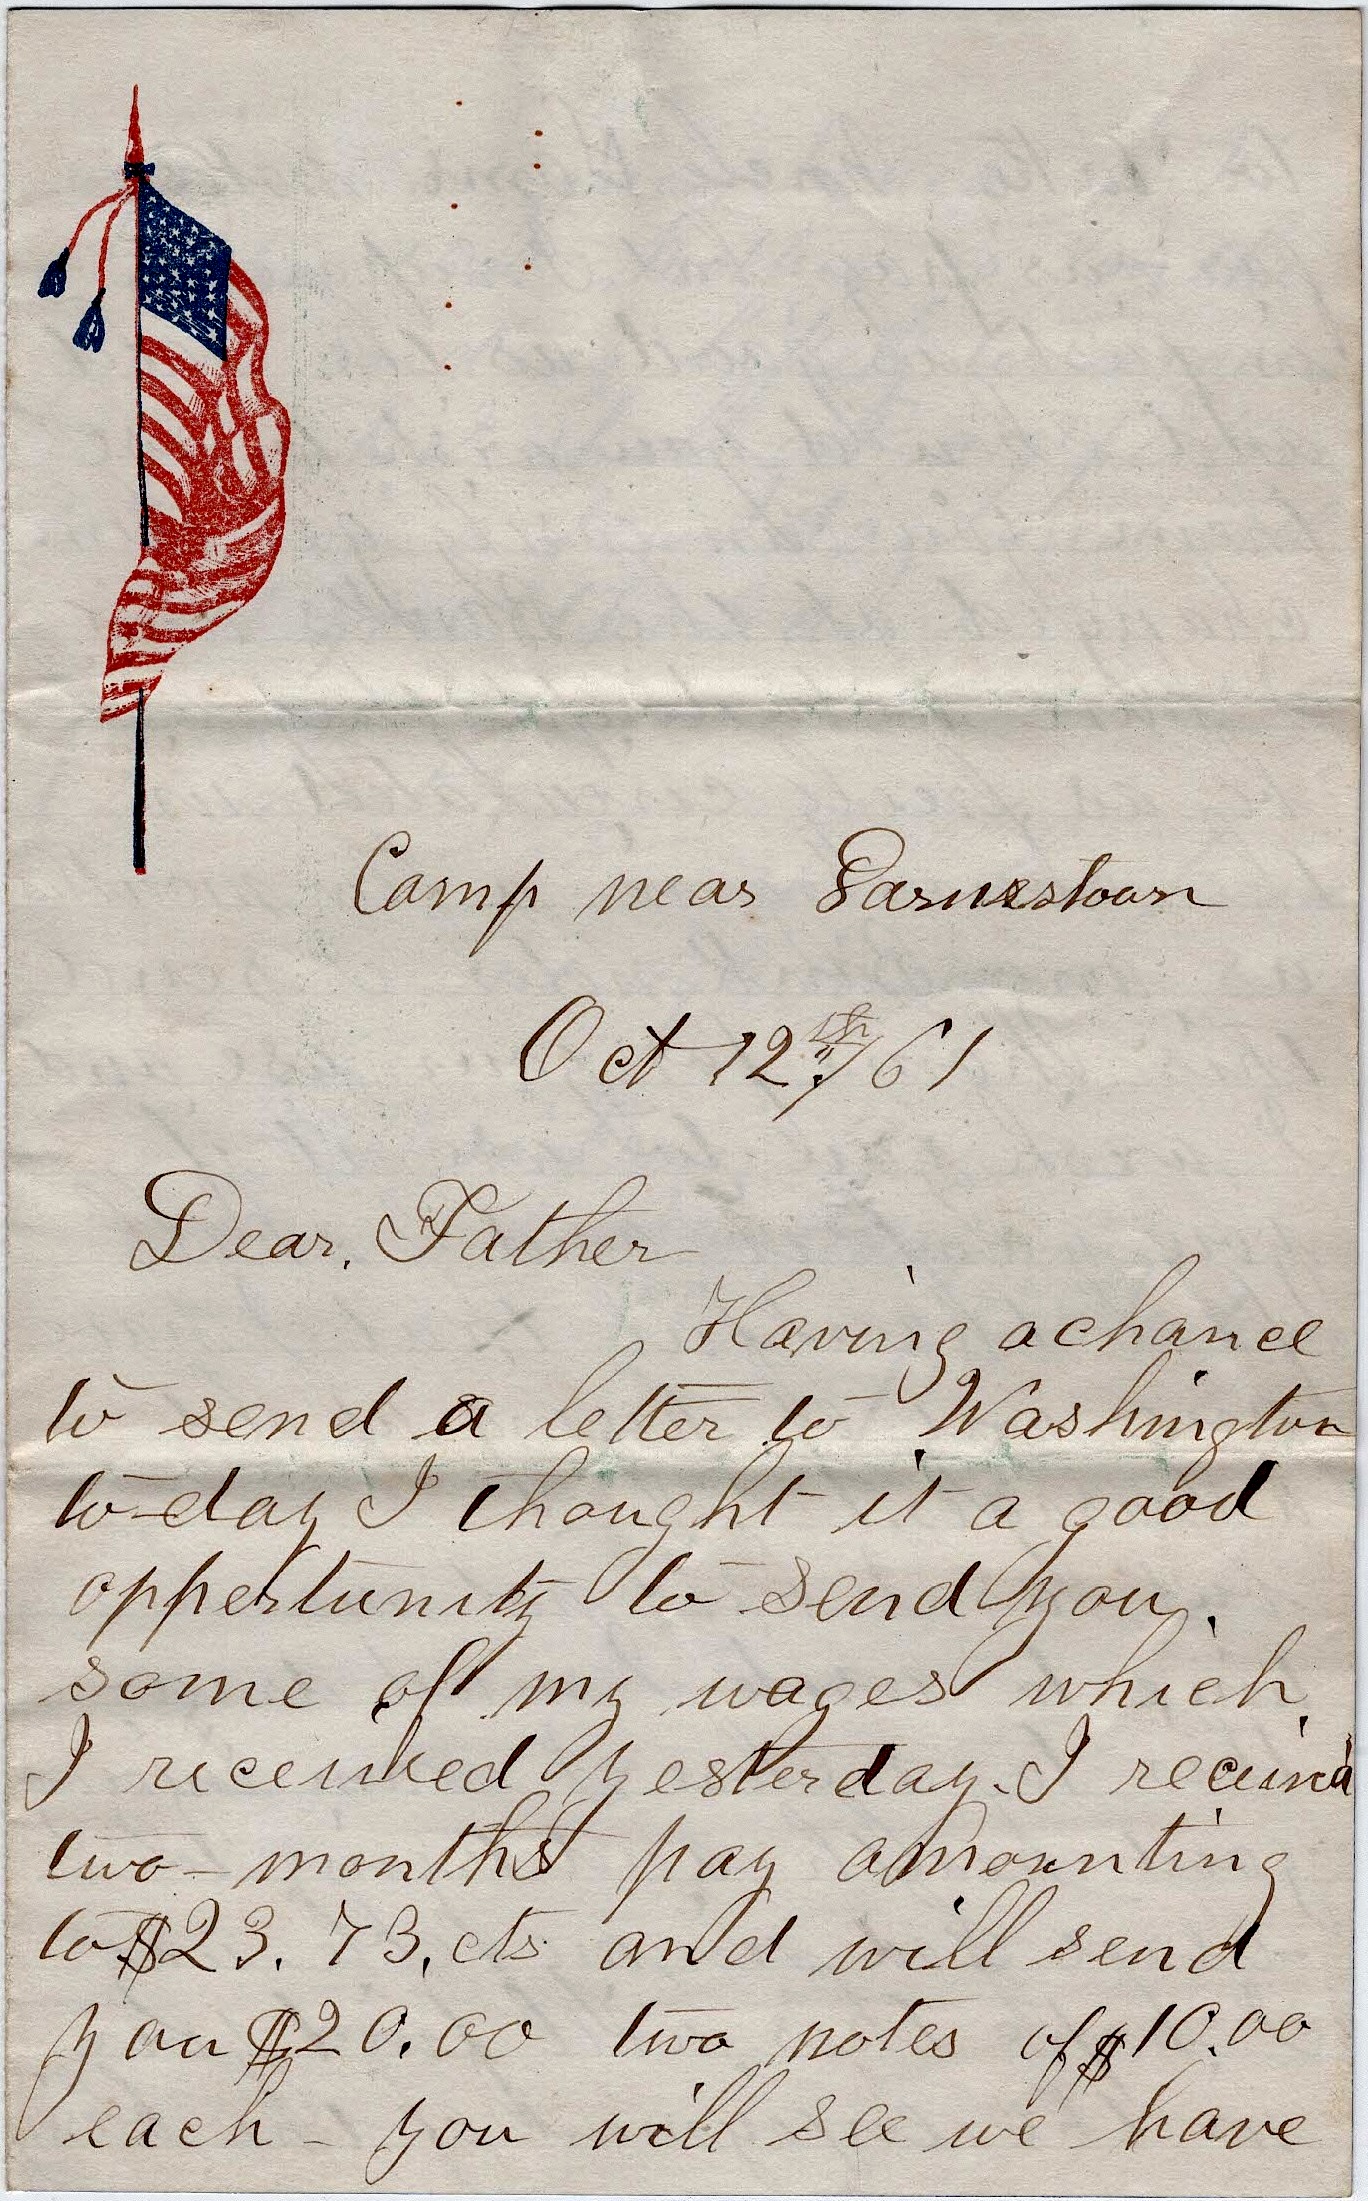 Camp near Darnestown
Oct 12th/61
Dear, Father
Having a chance
to send a letter to Washington
to-day I thought it a good
oppertunity to send you
some of my wages which
I received yesterday. I receiv'd
two-months pay amounting
to $23.73, cts and will send
you $20.00 two notes of $10.00
each - you will see we have